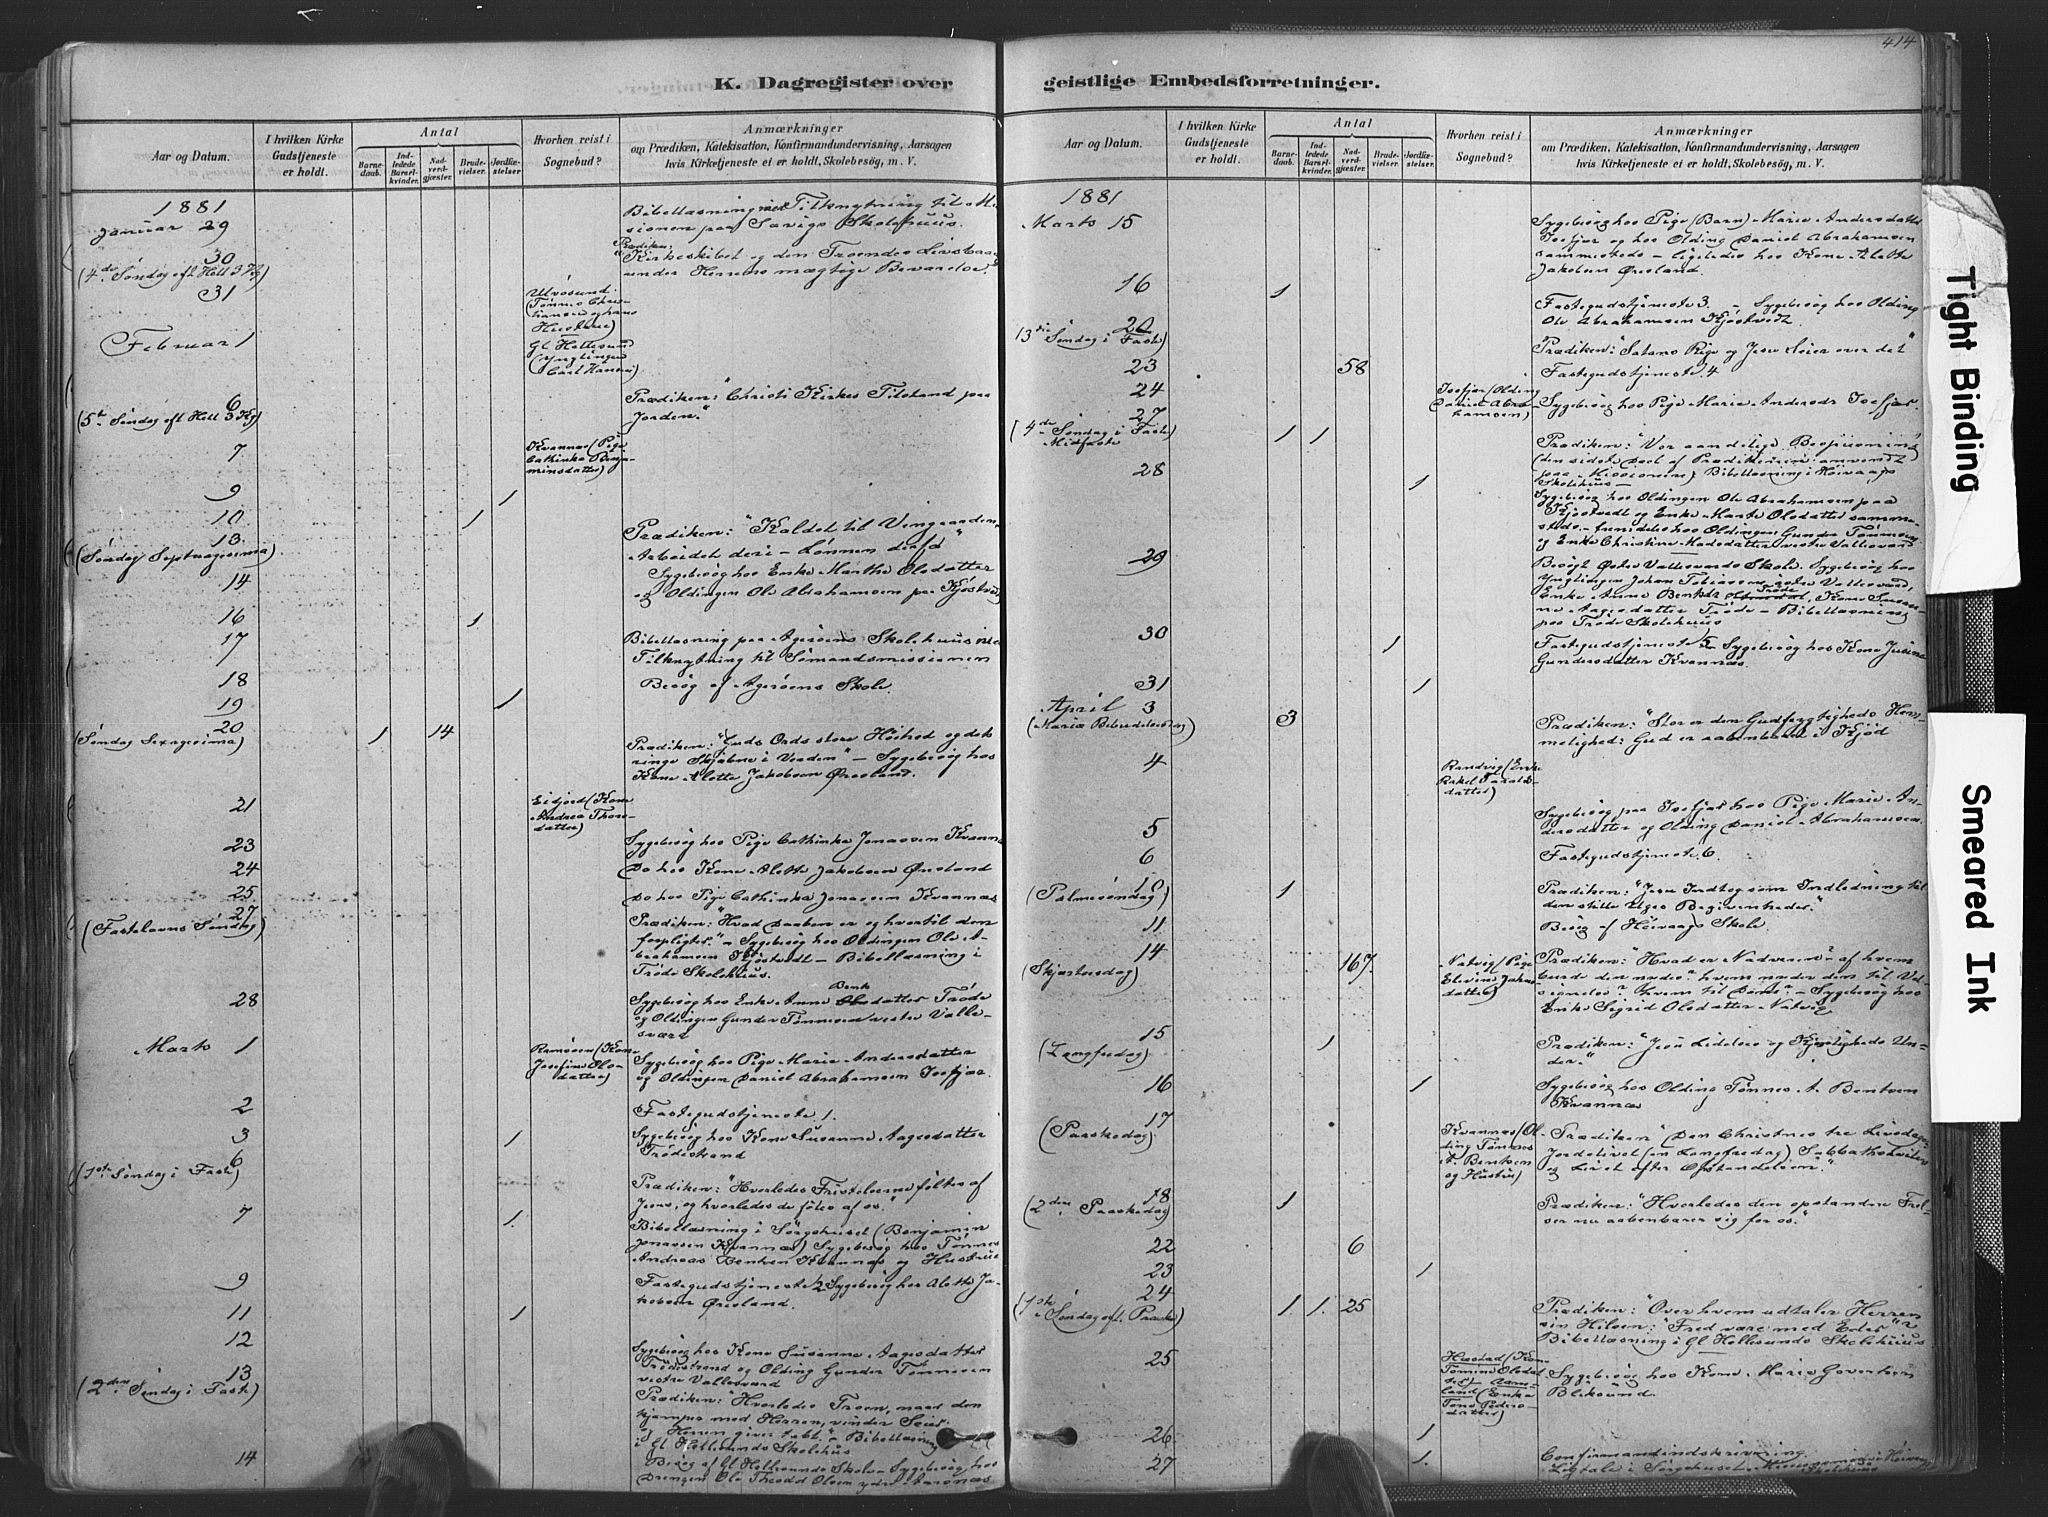 414
K. Dagregister over
Aar og Datum.
I hvilken Kirke
Gudstjeneste
er holdt.
Antal
Barne-
daab.
Ind-
ledede
Barsel-
kvinder.
Nad-
verd-
gjæster.
Brude-
vielser.
Jordfæ-
stelser
Hvorhen reist i
Sognebud?
Anmærkninger
om Prædiken, Katekisation, Konfirmandundervisning, Aarsagen
hvis Kirketjeneste ei er holdt, Skolebesög, m. V.
1881
Januar 29
Bibellæsning med Tilknytning til Mis
sionen paa Skolehuus.
30
(4de Søndag eft Hell 3 Kg)
Prædiken:
Kirkeskibet og den Troendes
under Herrens mægtige Bevarelse.
31
Ulvøsund
(Tønnes Chris-
tiansen og hans
Hustrue)
Februar 1
Gl. Hellesund
(Ynglingen
Carl Hansen)
6
(5te Søndag eft Hell 3 Kg)
Prædiken: "Christi Kirkes Tilstand paa
Jorden."
7
Kvannes (Pige
Cathinka Benja-
minsdatter)
9 1
10 1
13
(Søndag Septuagesima)
Prædiken: "Kaldet til Vingaarden -
Arbeidet deri - Lønnen deraf"
14
Sygebesög hos Enke Marthe Olsdatter
og Oldingen Ole Abrahamsen paa Kjöstvedt
16 1
17
Bibellæsning paa Ageröens Skolehuus med
Tilknytning til Sömandsmissionen
18
Besög af Ageröens Skole.
19 1
20
(Søndag Sexagesima) 1 14
Prædiken: "Guds Ords store Höihed og dets
ringe Skjæbne i Verden" - Sygebesög hos
Kone Alette Jakobsen Øresland.
21
Eidjord (Kone
Andrea Thors-
datter)
23
Sygebesög hos Pige Cathinka Jonassen Kvannes
24
Do hos Kone Alette Jakobsen Øresland
25
Do hos Pige Cathinka Jonassen Kvannæs
27
(Fastelavns Søndag)
Prædiken: "Hvad Daaben er og hvortil den
forpligter." - Sygebesög hos Oldingen Ole A-
brahamsen Kjöstvedt - Bibellæsning i
Tröde Skolehuus.
28
Sygebesög hos Enke Anne Bents datter Tröde
og Oldingen Gunder Tönnesen vestre Valle-
sværd
Marts 1
Ramsöen (Kone
Josefine Ols-
datter)
Sygebesög hos Pige Marie Andersdatter
og Oldingen Daniel Abrahamsen Isefjær.
2
Fastegudstjeneste 1.
3 1
Sygebesög hos Kone Susanne Aagesdatter
Trödestrand
6
(1ste Søndag i Faste)
Prædiken: "Hvorledes Fristelserne föltes af
Jesus, og hvorledes de föles af os."
7 1.
Bibellæsning i Sörgehuset (Benjamin
Jonassen Kvannæs) Sygebesög hos Tønnes
Andreas Bentsen Kvannæs og Hustrue
9
Fastegudstjeneste 2 Sygebesög hos Alette Ja-
kobsen Øresland.
11 1
12
Sygebesög hos Kone Susanne Aagesdatter
Trödestrand og Olding Gunder Tönnesen
vestre Vallesværd
13
(2den Søndag i Faste)
Prædiken: "Hvorledes Troen, naar den
kjæmper med Herren, vinder Seier
Herren giver tabt." - Bibellæsning
i Gl. Hellesunds Skolehus
14
Besög af Gl. Hellesunds Skole - Sygebesög hos
Drengen Ole Theodd Olsen ydre Aarsnæs
geistlige Embedsforretninger.
Aar og Datum.
I hvilken Kirke
Gudstjeneste
er holdt.
Antal
Barne-
daab.
Ind-
ledede
Barsel-
kvinder.
Nad-
verd-
gjæster.
Brude-
vielser.
Jordfæ-
stelser.
Hvorhen reist i
Sognebud?
Anmærkninger
om Prædiken, Katekisation, Konfirmandundervisning, Aarsagen
hvis Kirketjeneste ei er holdt, Skolebesög, m. V.
1881
Marts 15
Sygebesög hos Pige (Barn) Marie Andersdatter
Isefjær og hos Olding Daniel Abrahamsen
sammesteds - ligeledes hos Kone Alette
Jakobsen Øresland.
16 1
Fastegudstjeneste 3. - Sygebesög hos Olding
Ole Abrahamsen Kjöstvedt.
20
(3die Søndag i Faste)
Prædiken: "Satans Rige og Jesu Seier over det"
23 58
Fastegudstjeneste 4
24
Isefjær (Olding
Daniel Abra-
hamsen)
Sygebesög hos Pige Marie Andersdr Isefjær.
27
(4de Søndag i Faste)
Midfaste 1 1
Prædiken: "Vor aandelige Bespisning
(den sidste Deel af Prædikenen anvendt
paa Missionen) Bibellæsning i Höivaags
Skolehus -
28 1
Sygebesög hos Oldingen Ole Abrahamsen paa
Kjöstvedt og Enke Marte Olsdatter samme-
steds - fremdeles hos Oldingen Gunder Tønnesen
og Enke Christine Madsdatter vestre Vallesværd
29
Besögt Østre Vallesværds Skole. Sygebesög hos
Ynglingen Johan Tobiassen østre Vallesværd,
Enke Anne Bentsdr Tröde, Kone Susan-
ne Aagesdatter Tröde - Bibellæsning
paa Tröde Skolehuus
30 1
Fastegudstjeneste 5 Sygebesög hos Kone
Gundersdatter Kvannæs.
31 1
April 3
(Mariæ Bebudelsesdag) 3
Prædiken: "Stor er den Gudfrygtigheds Hem-
melighed: Gud er aabenbaret i Kjöd
4
Randvig (Enke
Rakel Taralds-
datter)
5
Sygebesög paa Isefjær hos Pige Marie An-
dersdatter og Olding Daniel Abrahamsen
6
Fastegudstjeneste 6.
10
(Palmesöndag) 1
Prædiken: "Jesu Indtog som Indledning til
den stille Uges Begivenheder."
11
Besög af Höivaags Skole.
14
(Skjærtorsdag) 167
Natvig (Pige
Elevine Jakobs-
datter)
Prædiken: "Hvad er Nadveren? - af hvem
bör de den nydes? hvem nyder den til Vel-
signelse? hvem til Döm?" - Sygebesög hos
Enke Sigrid Olsdatter Natvig
15
(Langfredag) 1
Prædiken: "Jesu Lidelses og Kjærligheds Un-
der."
16 1
Sygebesög hos Olding Tönnes A. Bentsen
Kvannæs
17
(Paaskedag)
Kvannæs (Ol-
ding Tönnes
A. Bentsen
og Hustru)
Prædiken "Den Christnes tre Livsdage:
Jordelivet (en Langfredag) Sabbathshvilen
og Livet efter Opstandelsen."
18
(2den Paaskedag) 1
Prædiken: "Hvorledes den opstandne Frel-
ser nu aabenbarer sig for os."
22 6
23 1
24
(1ste Søndag eft. Paaske) 1. 1. 25
Prædiken: "Over hvem udtaler Herren
sin Hilsen: "Fred være med Eder"?
Bibellæsning i Gl. Hellesunds Skolehuus
25
Hæstad (Kone
Tomine Olsdat-
ter) -
land (Enke
Tone Peders-
datter)
Sygebesög hos Kone Marie Govertsen
Bliksund.
26 1
27 1.
Confirmandindskrivning
Ligtale i Sørgehuset - i Höivaag
Skolehuus
Tight Binding
Smeared Ink